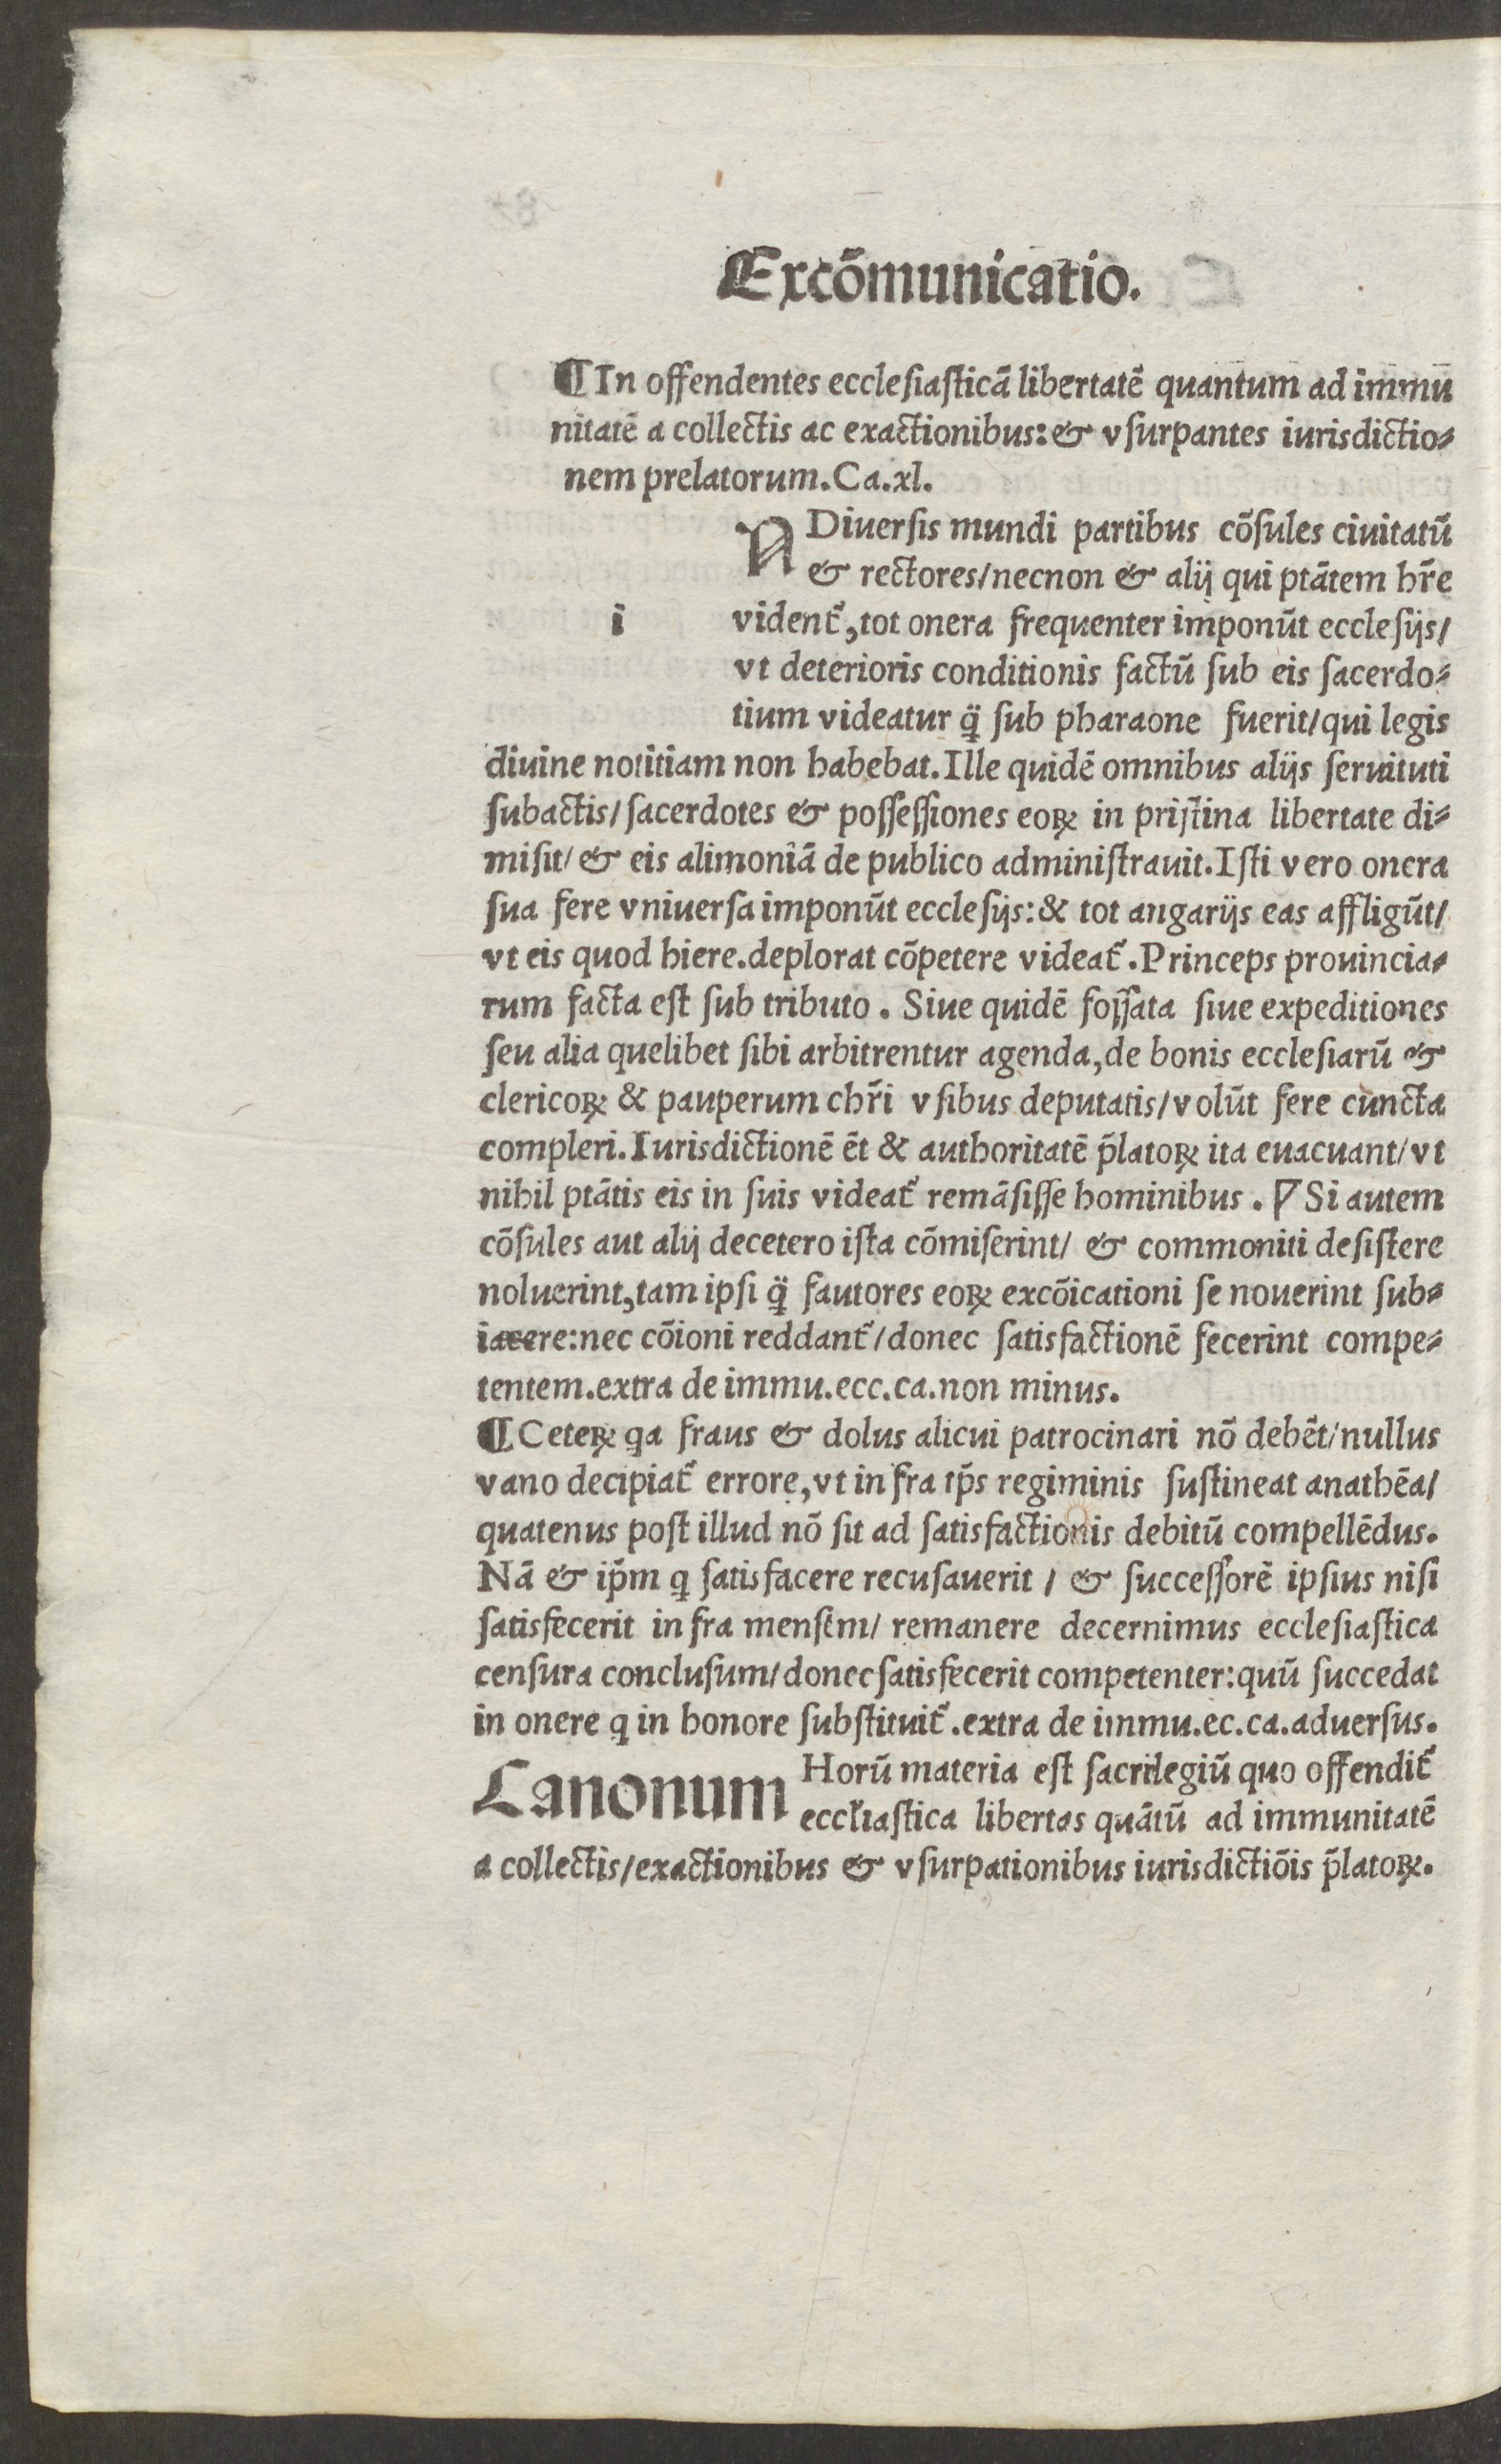 Excõmunicatio.
¶ In offendentes ecclesiasticã libertatẽ quantum ad immu
nitatẽ a collectis ac exactionibus: & vsurpantes iurisdictio⸗
nem prelatorum. Ca. xl.
N Diuersis mundi partibus cõsules ciuitatũ
& rectores/ necnon & alij qui ptãtem hr̃e
i vident᷑, tot onera frequenter imponũt ecclesijs/
vt deterioris conditionis factũ sub eis sacerdo⸗
tium videatur q̃ȝ sub pharaone fuerit/ qui legis
diuine notitiam non habebat. Ille quidẽ omnibus alijs seruituti
subactis/ sacerdotes & possessiones eoꝝ in pristina libertate di⸗
misit/ & eis alimoniã de publico administrauit. Isti vero onera
sua fere vniuersa imponũt ecclesijs: & tot angarijs eas affligũt/
vt eis quod hiere. deplorat cõpetere videat᷑. Princeps prouincia⸗
rum facta est sub tributo. Siue quidẽ fossata siue expeditiones
seu alia quelibet sibi arbitrentur agenda, de bonis ecclesiarũ &
clericoꝝ & pauperum chr̃i vsibus deputatis/ volũt fere cuncta
compleri. Iurisdictionẽ ẽt & authoritatẽ p̃latoꝝ ita euacuant/ vt
nihil ptãtis eis in suis videat᷑ remãsisse hominibus. ¶ Si autem
cõsules aut alij decetero ista cõmiserint/ & commoniti desistere
noluerint, tam ipsi q̃ȝ fautores eoꝝ excõicationi se nouerint sub⸗
iacere: nec cõioni reddant᷑/ donec satisfactionẽ fecerint compe⸗
tentem. extra de immu. ecc. ca. non minus.
¶ Ceteꝝ qa fraus & dolus alicui patrocinari nõ debẽt/ nullus
vano decipiat᷑ errore, vt infra tp̃s regiminis sustineat anathẽa/
quatenus post illud nõ sit ad satisfactionis debitũ compellẽdus.
Nã & ip̃m q satisfacere recusauerit / & successorẽ ipsius nisi
satisfecerit infra mensem/ remanere decernimus ecclesiastica
censura conclusum/ donec satisfecerit competenter: quũ succedat
in onere q in honore substituit᷑. extra de immu. ec. ca. aduersus.
Canonum Horũ materia est sacrilegiũ quo offendit᷑
eccl̃iastica libertas quãtũ ad immunitatẽ
a collectis/ exactionibus & vsurpationibus iurisdictiõis p̃latoꝝ.